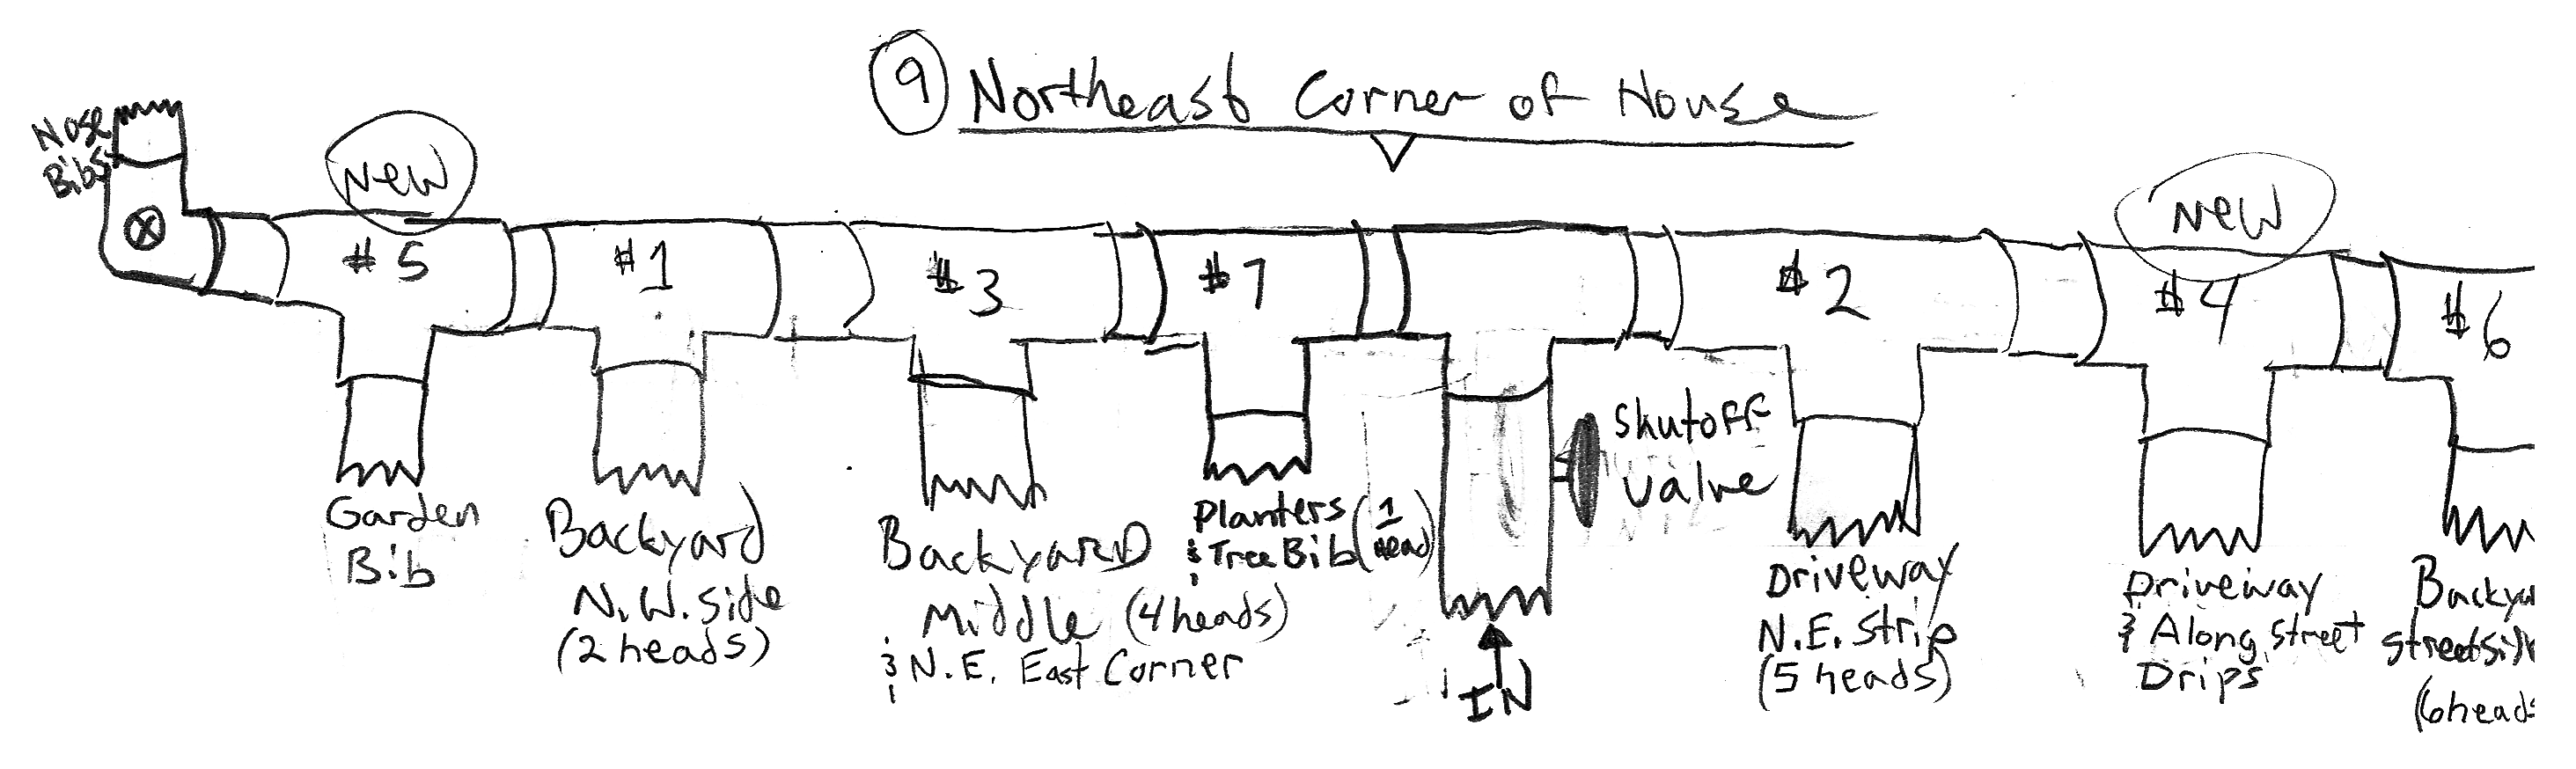 9 Northeast Corner of House
Nose
Bibs
New
New
#5
#1
#3
#7
#2
#4
#6
Garden
Bib
Backyard
N.W. side
(2 heads)
Backyard
Middle (4 heads)
& N.E. East Corner
Planters (1
& Tree Bib head)
Shutoff
Valve
IN
Driveway
N.E. Strip
(5 heads)
Driveway
& Along Street
Drips
Backya
Streetsid
(6 heads